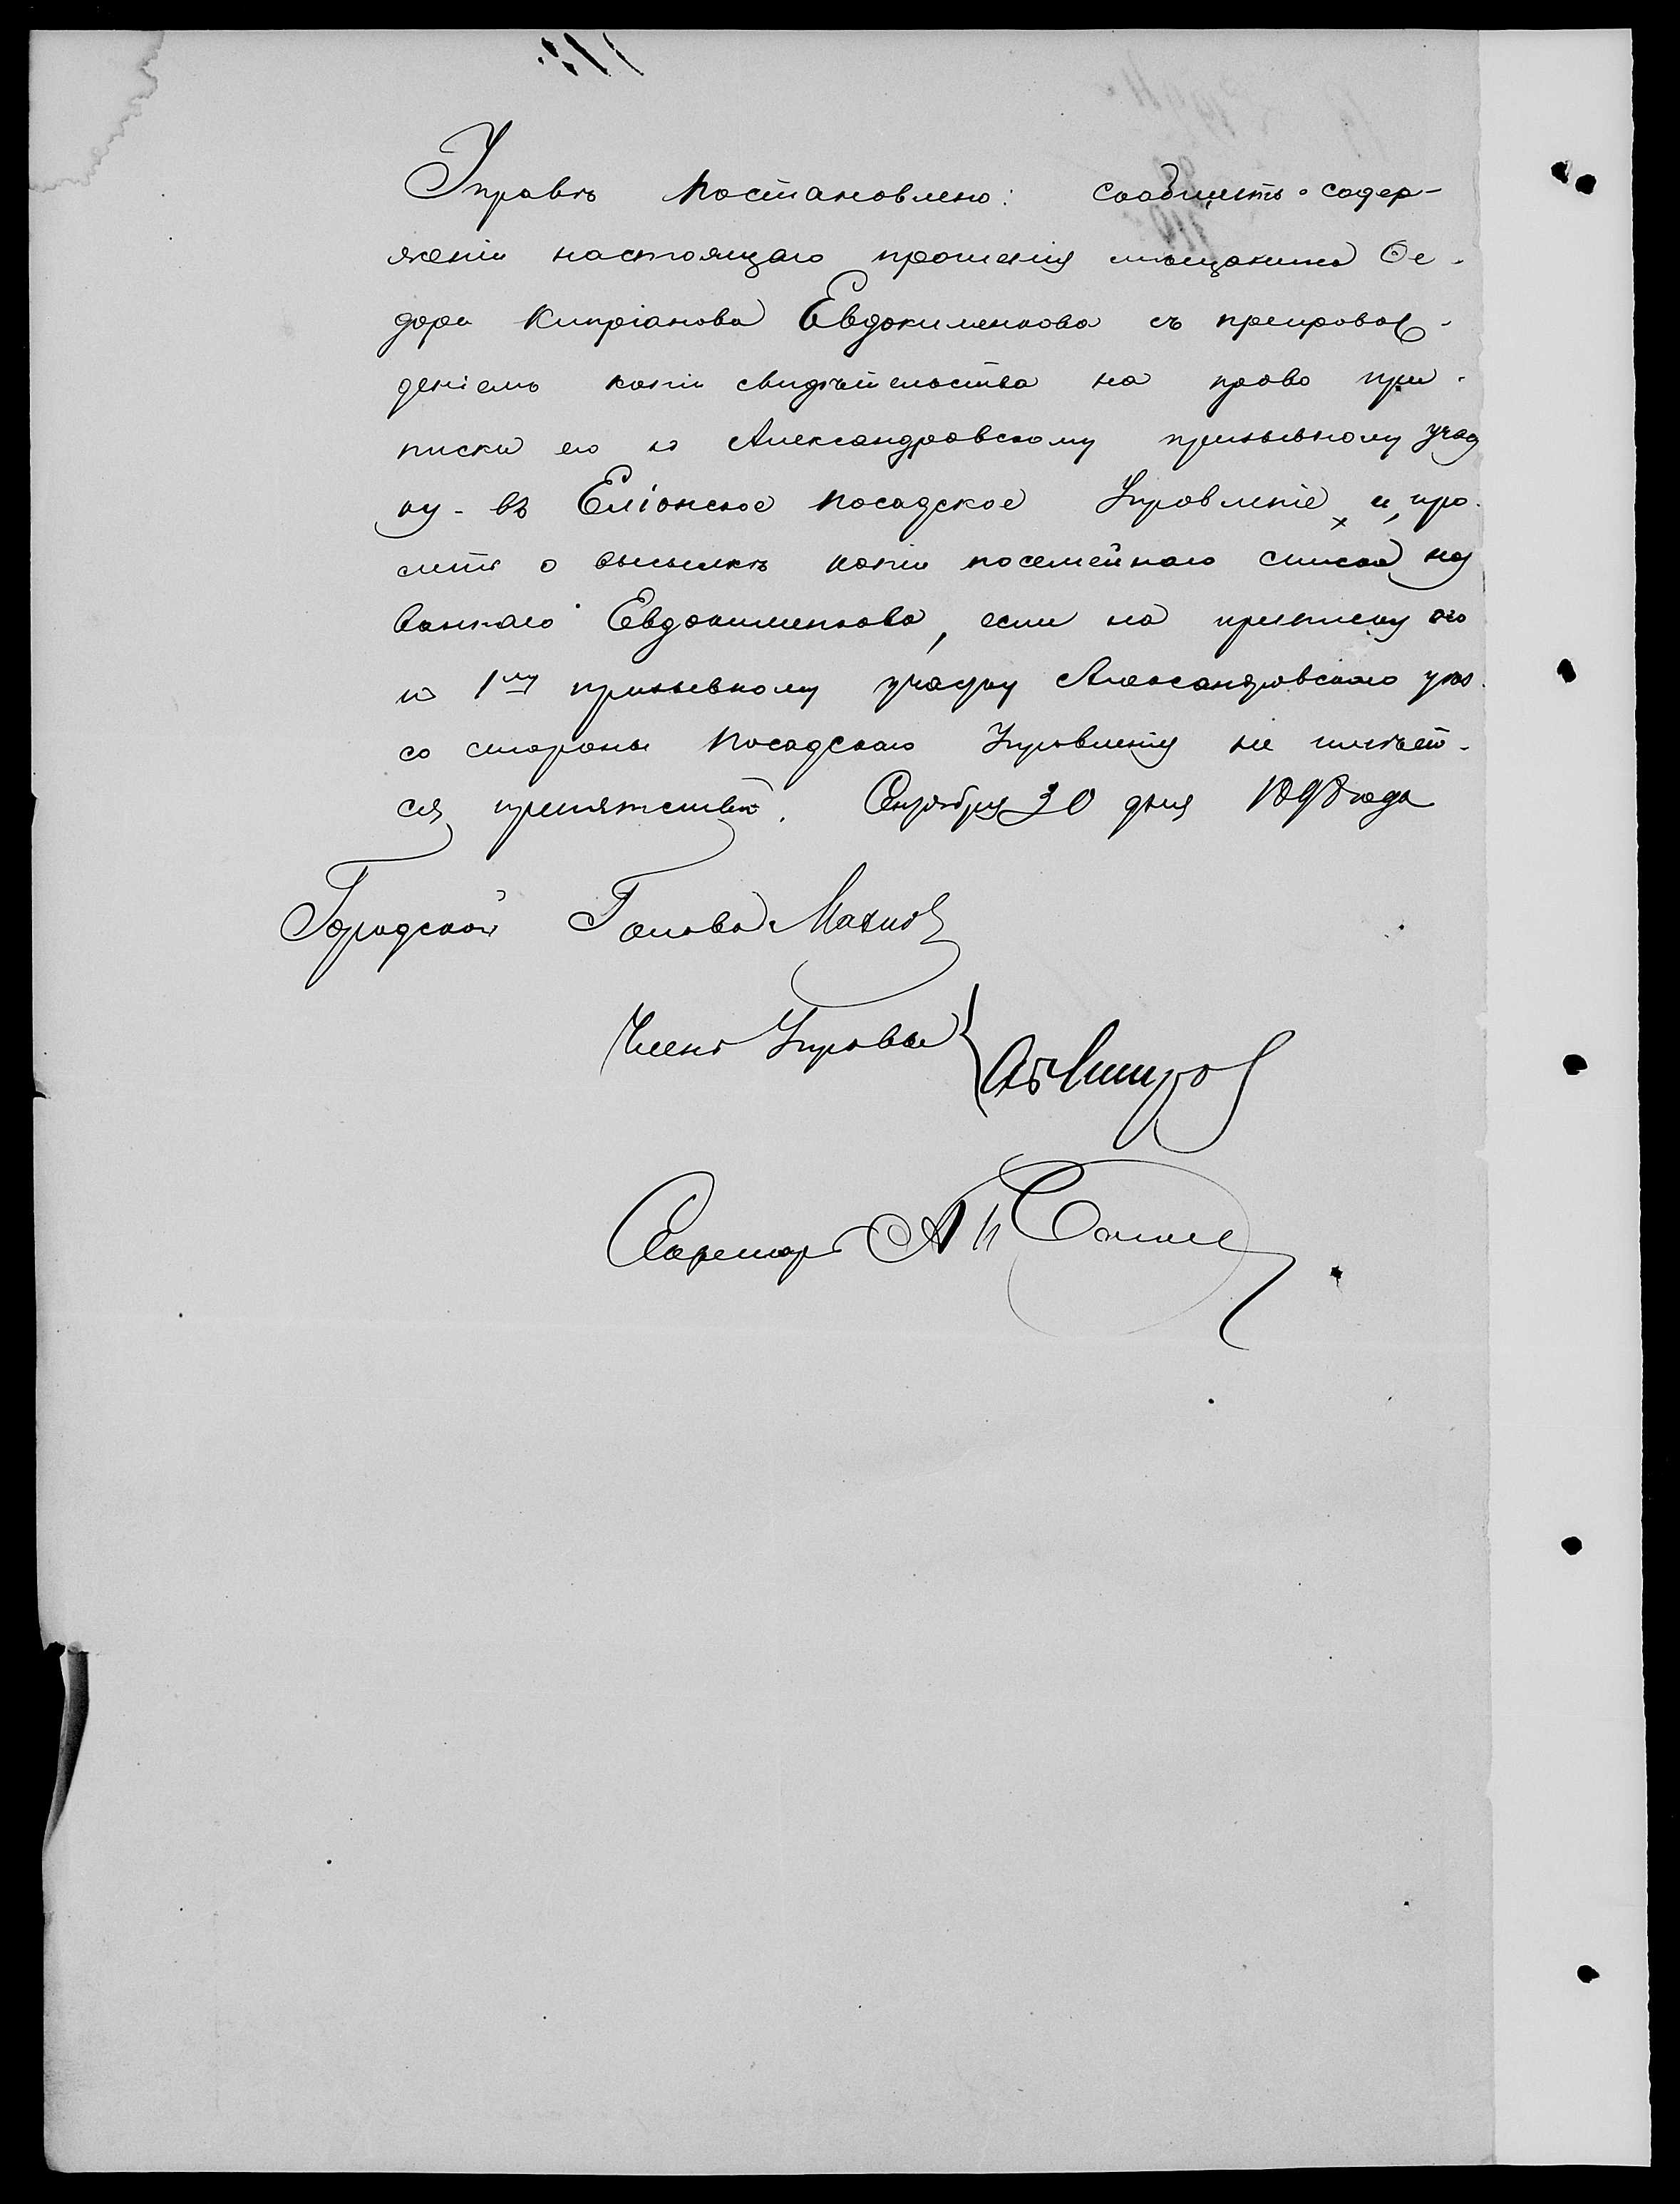 Управѣ постановлено: сообщить о содер-
жаніи настоящаго прошенія мѣщанина Ѳе-
дора Кипріанова Евдокименкова съ препровож-
деніемъ копіи свидѣтельства на право при-
писки его къ Александровскому призывному участ
ку - въ Еліонское посадское Управленіе и про-
сить о высылкѣ копіи посемейнаго списка наз
ваннаго Евдокименкова, если на приписку его
къ 1му призывному участку Александровскаго уѣз.
со стороны посадскаго Управленія не имѣет-
ся препятствій. Октября 30 дня 1898 года
Городской Голова Махно
Членъ Управы
Секретарь А